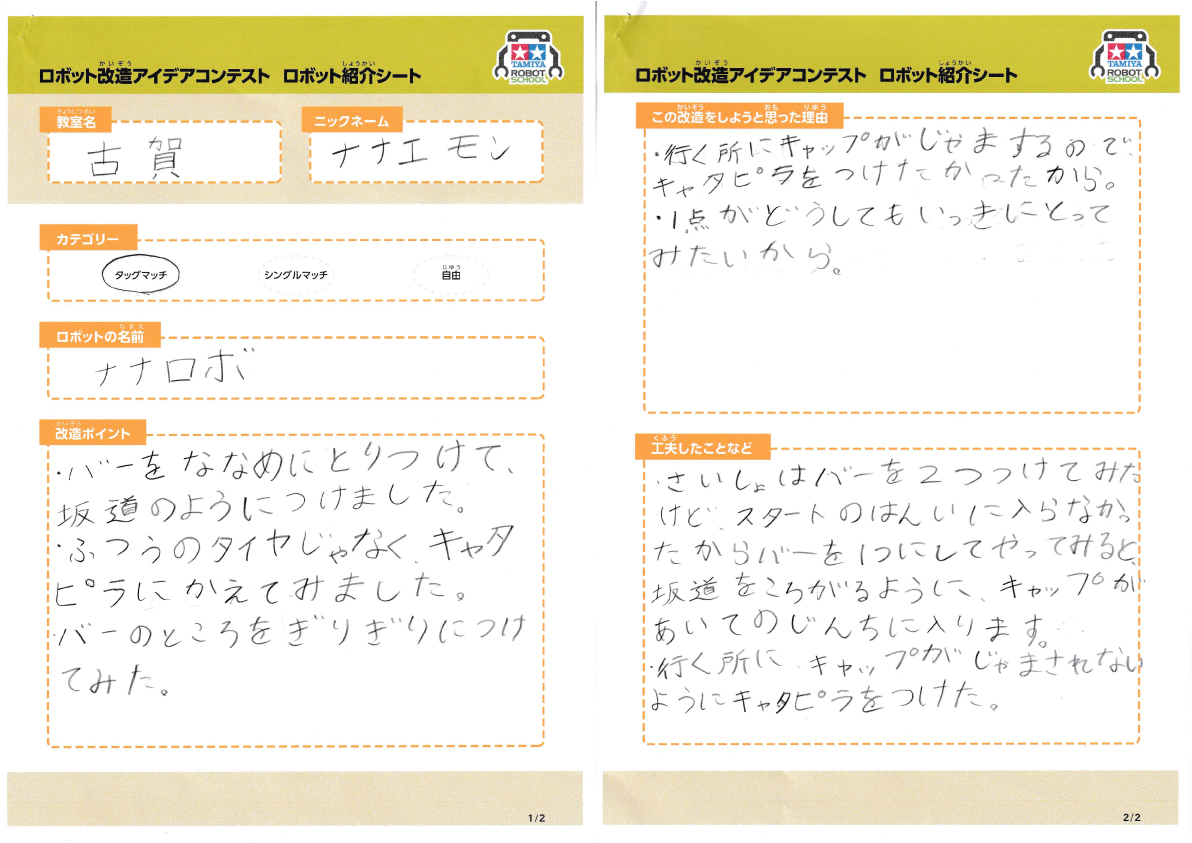 かいぞう しょうかい
ロボット改造アイデアコンテスト ロボット紹介シート
TAMIYA
ROBOT
SCHOOL
きょうしつめい
教室名
古賀
ニックネーム
ナナエモン
カテゴリー
タッグマッチ
シングルマッチ
じゆう
自由
なまえ
ロボットの名前
ナナロボ
かいぞう
改造ポイント
・バーをななめにとりつけて、
坂道のようにつけました。
・ふつうのタイヤじゃなく、キャタ
ピラにかえてみました。
・バーのところをぎりぎりにつけ
てみた。
1/2
かいぞう しょうかい
ロボット改造アイデアコンテスト ロボット紹介シート
TAMIYA
ROBOT
SCHOOL
かいぞう おも りゆう
この改造をしようと思った理由
・行く所にキャップがじゃまするので、
キャタピラをつけたかったから。
・1点がどうしてもいっきにとって
みたいから。
くふう
工夫したことなど
・さいしょはバーを2つつけてみた
けど、スタートのはんいに入らなかっ
たからバーを1つにしてやってみると、
坂道をころがるように、キャップが
あいてのじんちに入ります。
・行く所に、キャップがじゃまされない
ようにキャタピラをつけた。
2/2